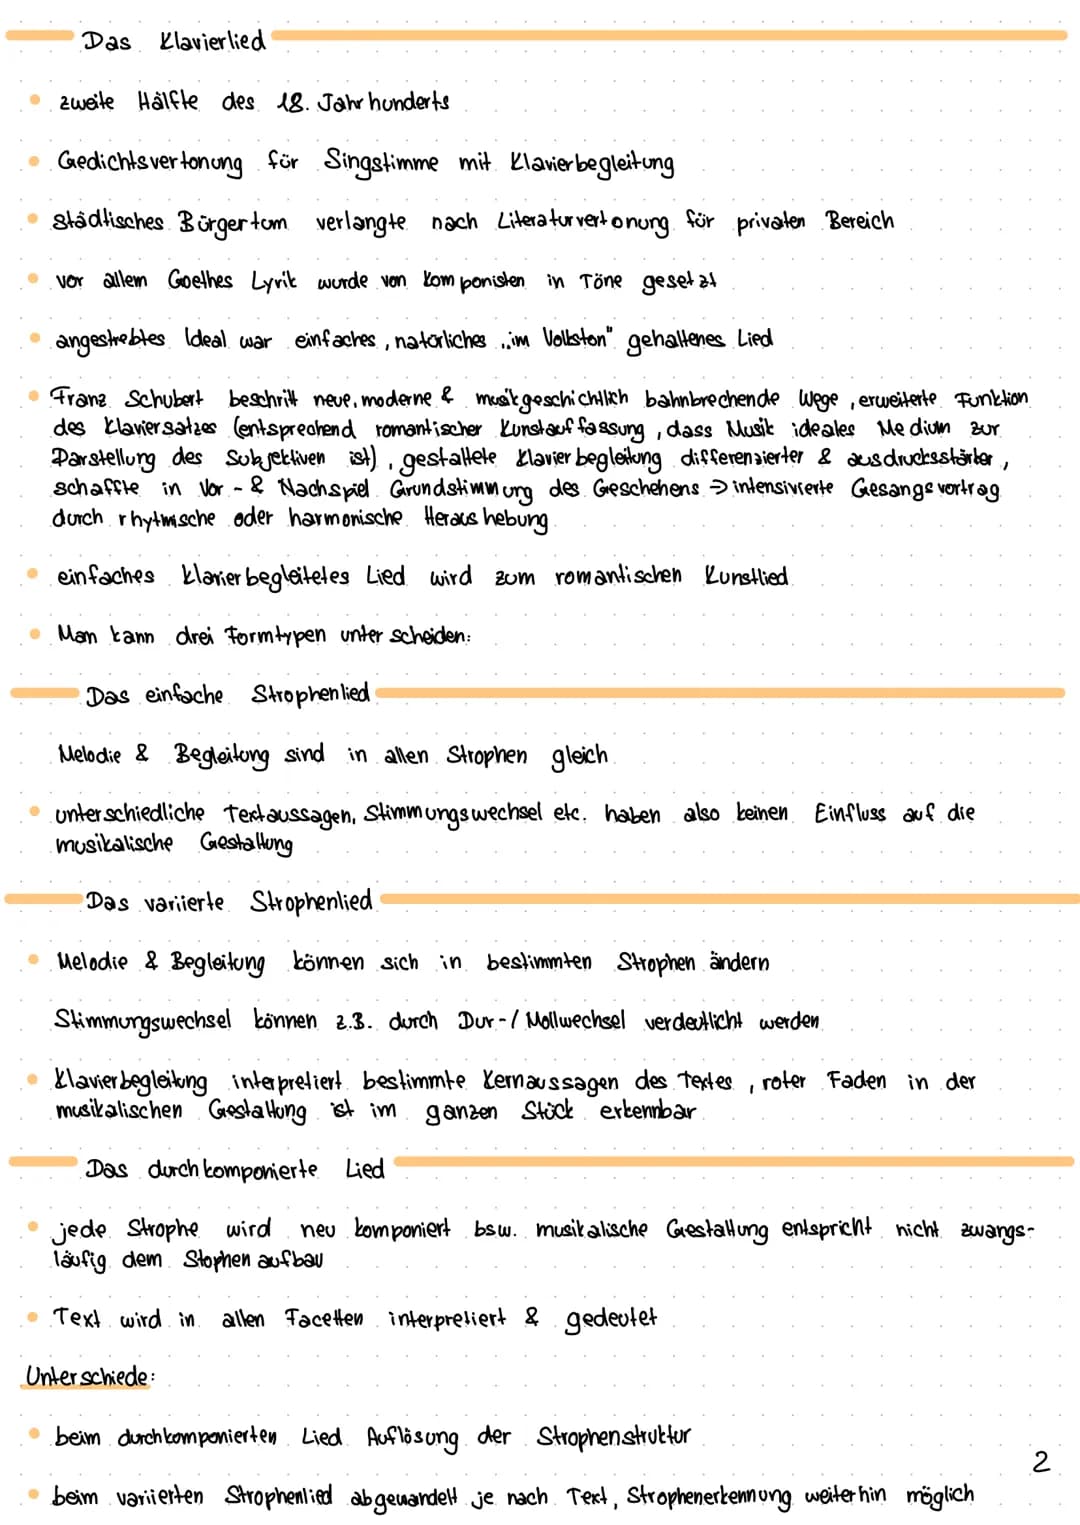 Das Klavierlied
• zweite Hälfte des 18. Jahrhunderts
• Gedichtsvertonung für Singstimme mit Klavierbegleitung
• städtisches Bürgertum verlangte nach Literaturvertonung für privaten Bereich
• vor allem Goethes Lyrik wurde von Komponisten in Töne gesetzt
• angestrebtes Ideal war einfaches, natürliches „im Volkston" gehaltenes Lied
• Franz Schubert beschritt neue, moderne & musikgeschichtlich bahnbrechende Wege, erweiterte Funktion
des Klaviersatzes (entsprechend romantischer Kunstauffassung, dass Musik ideales Medium zur
Darstellung des Subjektiven ist), gestaltete Klavierbegleitung differenzierter & ausdrucksstärker,
schaffte in Vor- & Nachspiel Grundstimmung des Geschehens → intensivierte Gesangsvortrag
durch rhytmische oder harmonische Heraushebung
• einfaches klavierbegleitetes Lied wird zum romantischen Kunstlied
• Man kann drei Formtypen unterscheiden:
Das einfache Strophenlied
Melodie & Begleitung sind in allen Strophen gleich
• unterschiedliche Textaussagen, Stimmungswechsel etc. haben also keinen Einfluss auf die
musikalische Gestaltung
Das variierte Strophenlied
• Melodie & Begleitung können sich in bestimmten Strophen ändern
Stimmungswechsel können z.B. durch Dur-/Mollwechsel verdeutlicht werden
• Klavierbegleitung interpretiert bestimmte Kernaussagen des Textes, roter Faden in der
musikalischen Gestaltung ist im ganzen Stück erkennbar
Das durchkomponierte Lied
• jede Strophe wird neu komponiert bsw. musikalische Gestaltung entspricht nicht zwangs-
läufig dem Stophenaufbau
• Text wird in allen Facetten interpretiert & gedeutet
Unterschiede:
• beim durchkomponierten Lied Auflösung der Strophenstruktur
2
• beim variierten Strophenlied abgewandelt je nach Text, Strophenerkennung weiterhin möglich